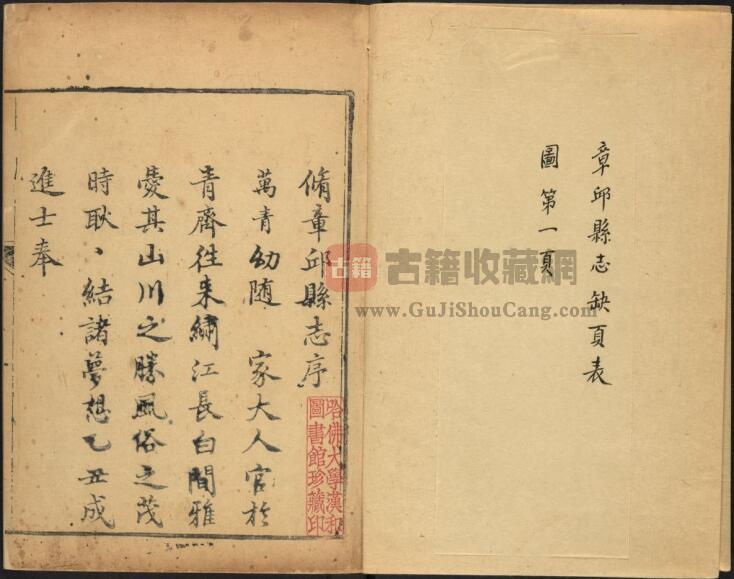 章邱縣志缺頁表
圖第一頁
脩章邱縣志序
萬青幼随 家大人官於
青齊往来繡江長白間雅
愛其山川之勝風俗之茂
時耿〻結諸夢想乙丑成
進士奉
哈佛大學漢和
圖書館珍藏印
古籍
古籍收藏網
www.GuJiShouCang.com